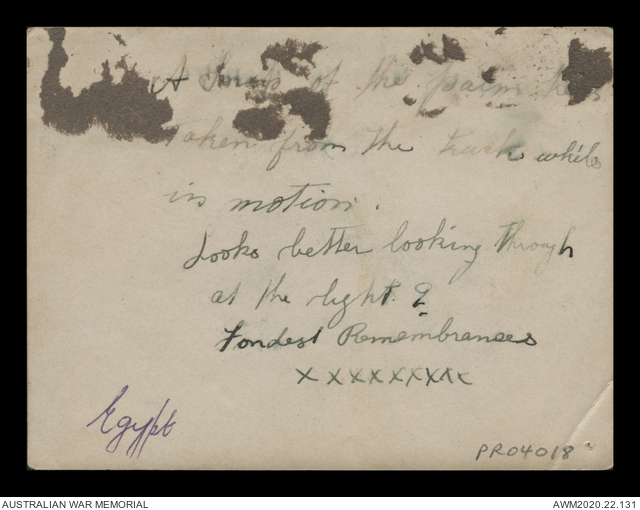 A Snap of the palm trees
Taken from the truck while
in motion.
Looks better looking through
at the light ?
Fondest Remembrances
x x x x x x x x x x
Egypt
PR04018
AUSTRALIAN WAR MEMORIAL
AWM2020.22.131